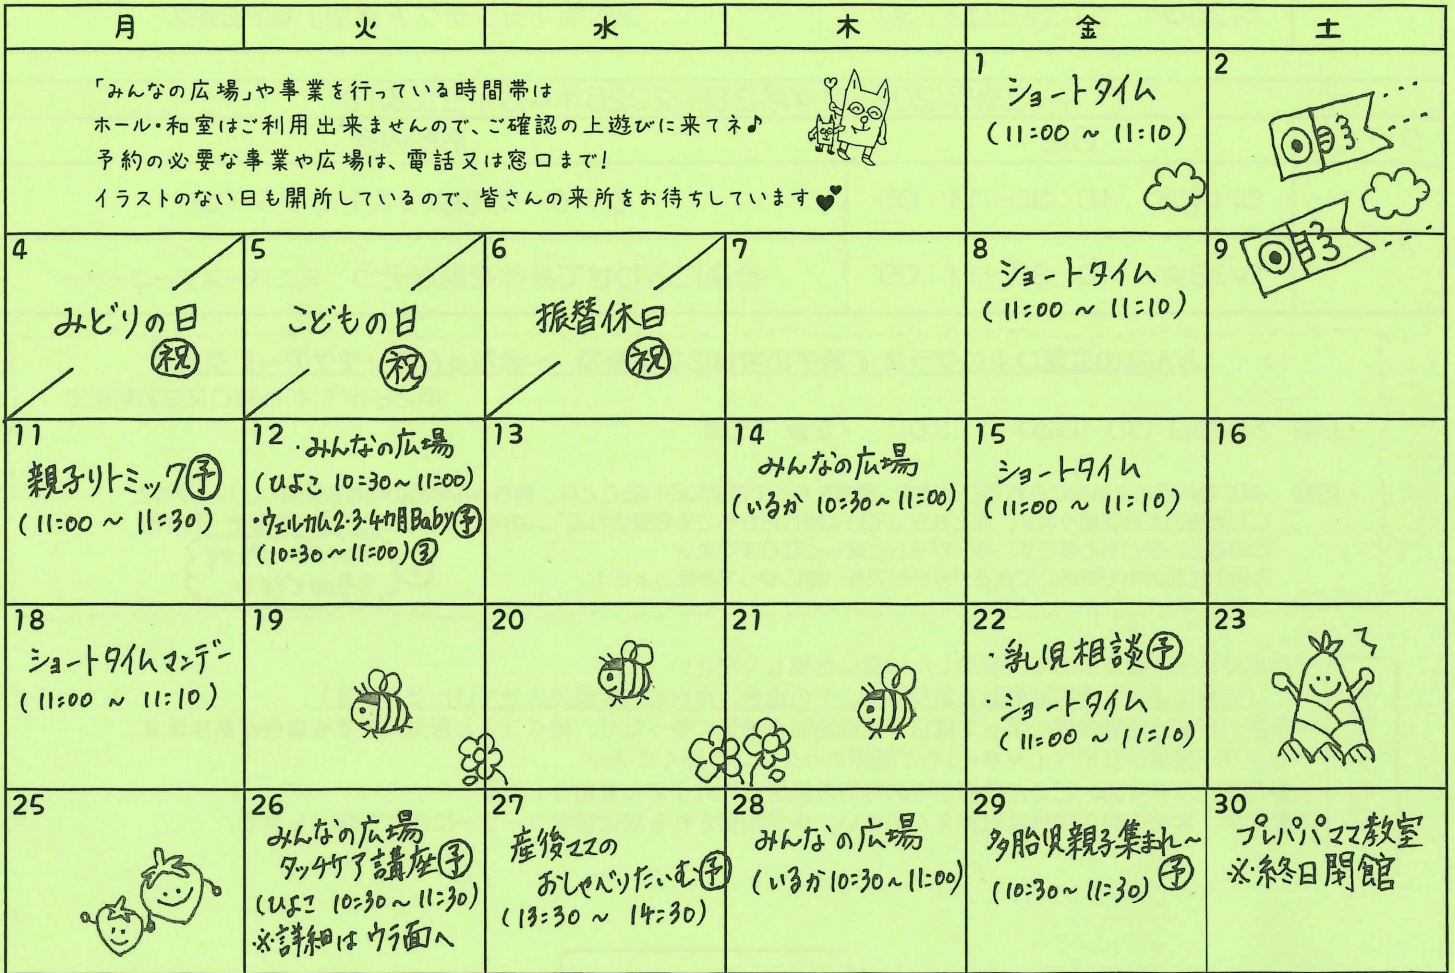 月 火 水 木 金 土
「みんなの広場」や事業を行っている時間帯は
ホール・和室はご利用出来ませんので、ご確認の上遊びに来てネ♪
予約の必要な事業や広場は、電話又は窓口まで!
イラストのない日も開所しているので、皆さんの来所をお待ちしています
1
ショートタイム
(11:00 ~ 11:10)
2
4
みどりの日
祝
5
こどもの日
祝
6
振替休日
祝
7
8
ショートタイム
(11:00 ~ 11:10)
9
11
親子リトミック予
(11:00 ~ 11:30)
12
・みんなの広場
(ひよこ 10:30~11:00)
・ウェルカム2・3・4カ月Baby予
(10:30~11:00)③
13
14
みんなの広場
(いるか 10:30~11:00)
15
ショートタイム
(11:00 ~ 11:10)
16
18
ショートタイムマンデー
(11:00 ~ 11:10)
19
20
21
22
・乳児相談予
・ショートタイム
(11:00 ~ 11:10)
23
25
26
みんなの広場
タッチケア講座予
(ひよこ 10:30~11:30)
※詳細はウラ面へ
27
産後ママの
おしゃべりたいむ予
(13:30 ~ 14:30)
28
みんなの広場
(いるか10:30~11:00)
29
多胎児親子集まれ~
(10:30~11:30)予
30
プレパパママ教室
※終日閉館